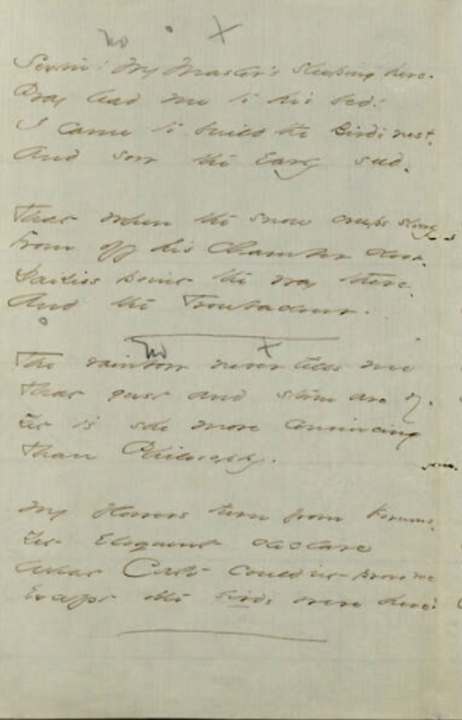 no x
Sexton! My Master's sleeping here.
Pray lead me to his bed!
I came to build the Bird's nest,
And sow the Early seed.
That when the snow creeps slowly
From off his Chamber door.
Daisies point the way there.
And the Troubadour.
no x
The rainbow never tells me
That gust and storm are by.
Yet is she more convincing
Than Philosophy.
My flowers turn from Forums.
Yet Eloquent declare
What Cato couldn't prove me
Except the birds were here!